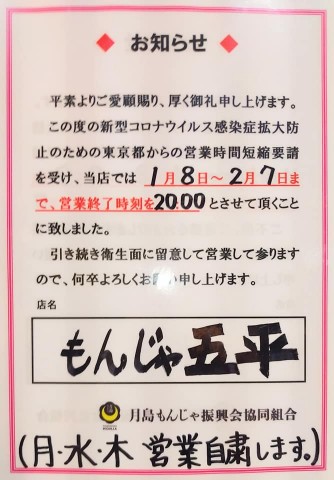 ◆ お知らせ ◆
平素よりご愛顧賜り、厚く御礼申し上げます。
この度の新型コロナウイルス感染症拡大防
止のための東京都からの営業時間短縮要請
を受け、当店では 1月8日～2月7日ま
で、営業終了時刻を20:00とさせて頂くこと
に致しました。
引き続き衛生面に留意して営業して参ります
ので、何卒よろしくお願い申し上げます。
店名
もんじゃ五平
月島もんじゃ振興会協同組合
(月・水・木 営業自粛します。)